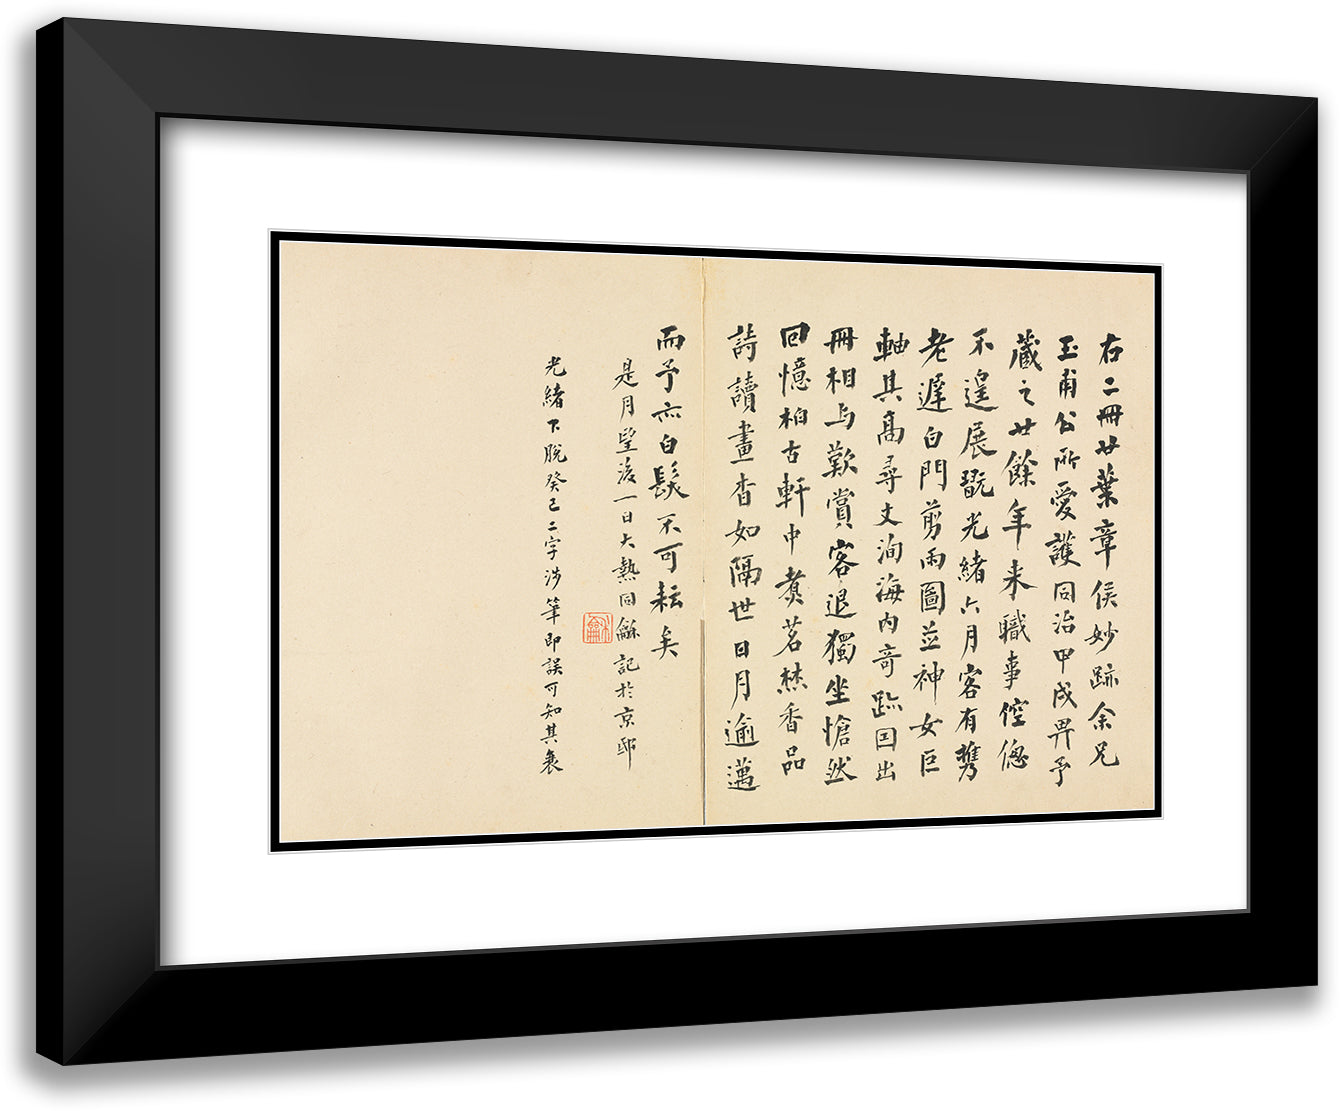 右二冊廿葉章侯妙跡余兄
玉甫公所愛護同治甲戌畀予
藏之廿餘年來職事倥傯
不遑展翫光緒六月客有攜
老遲白門剪雨圖並神女巨
軸其高尋丈洵海內奇跡因出
冊相與歎賞客退獨坐愴然
回憶柏古軒中煮茗焚香品
詩讀畫杳如隔世日月逾邁
而予亦白髮不可耘矣
是月望後一日大熱同龢記於京邸
光緒下脫癸巳二字涉筆即誤可知其衰